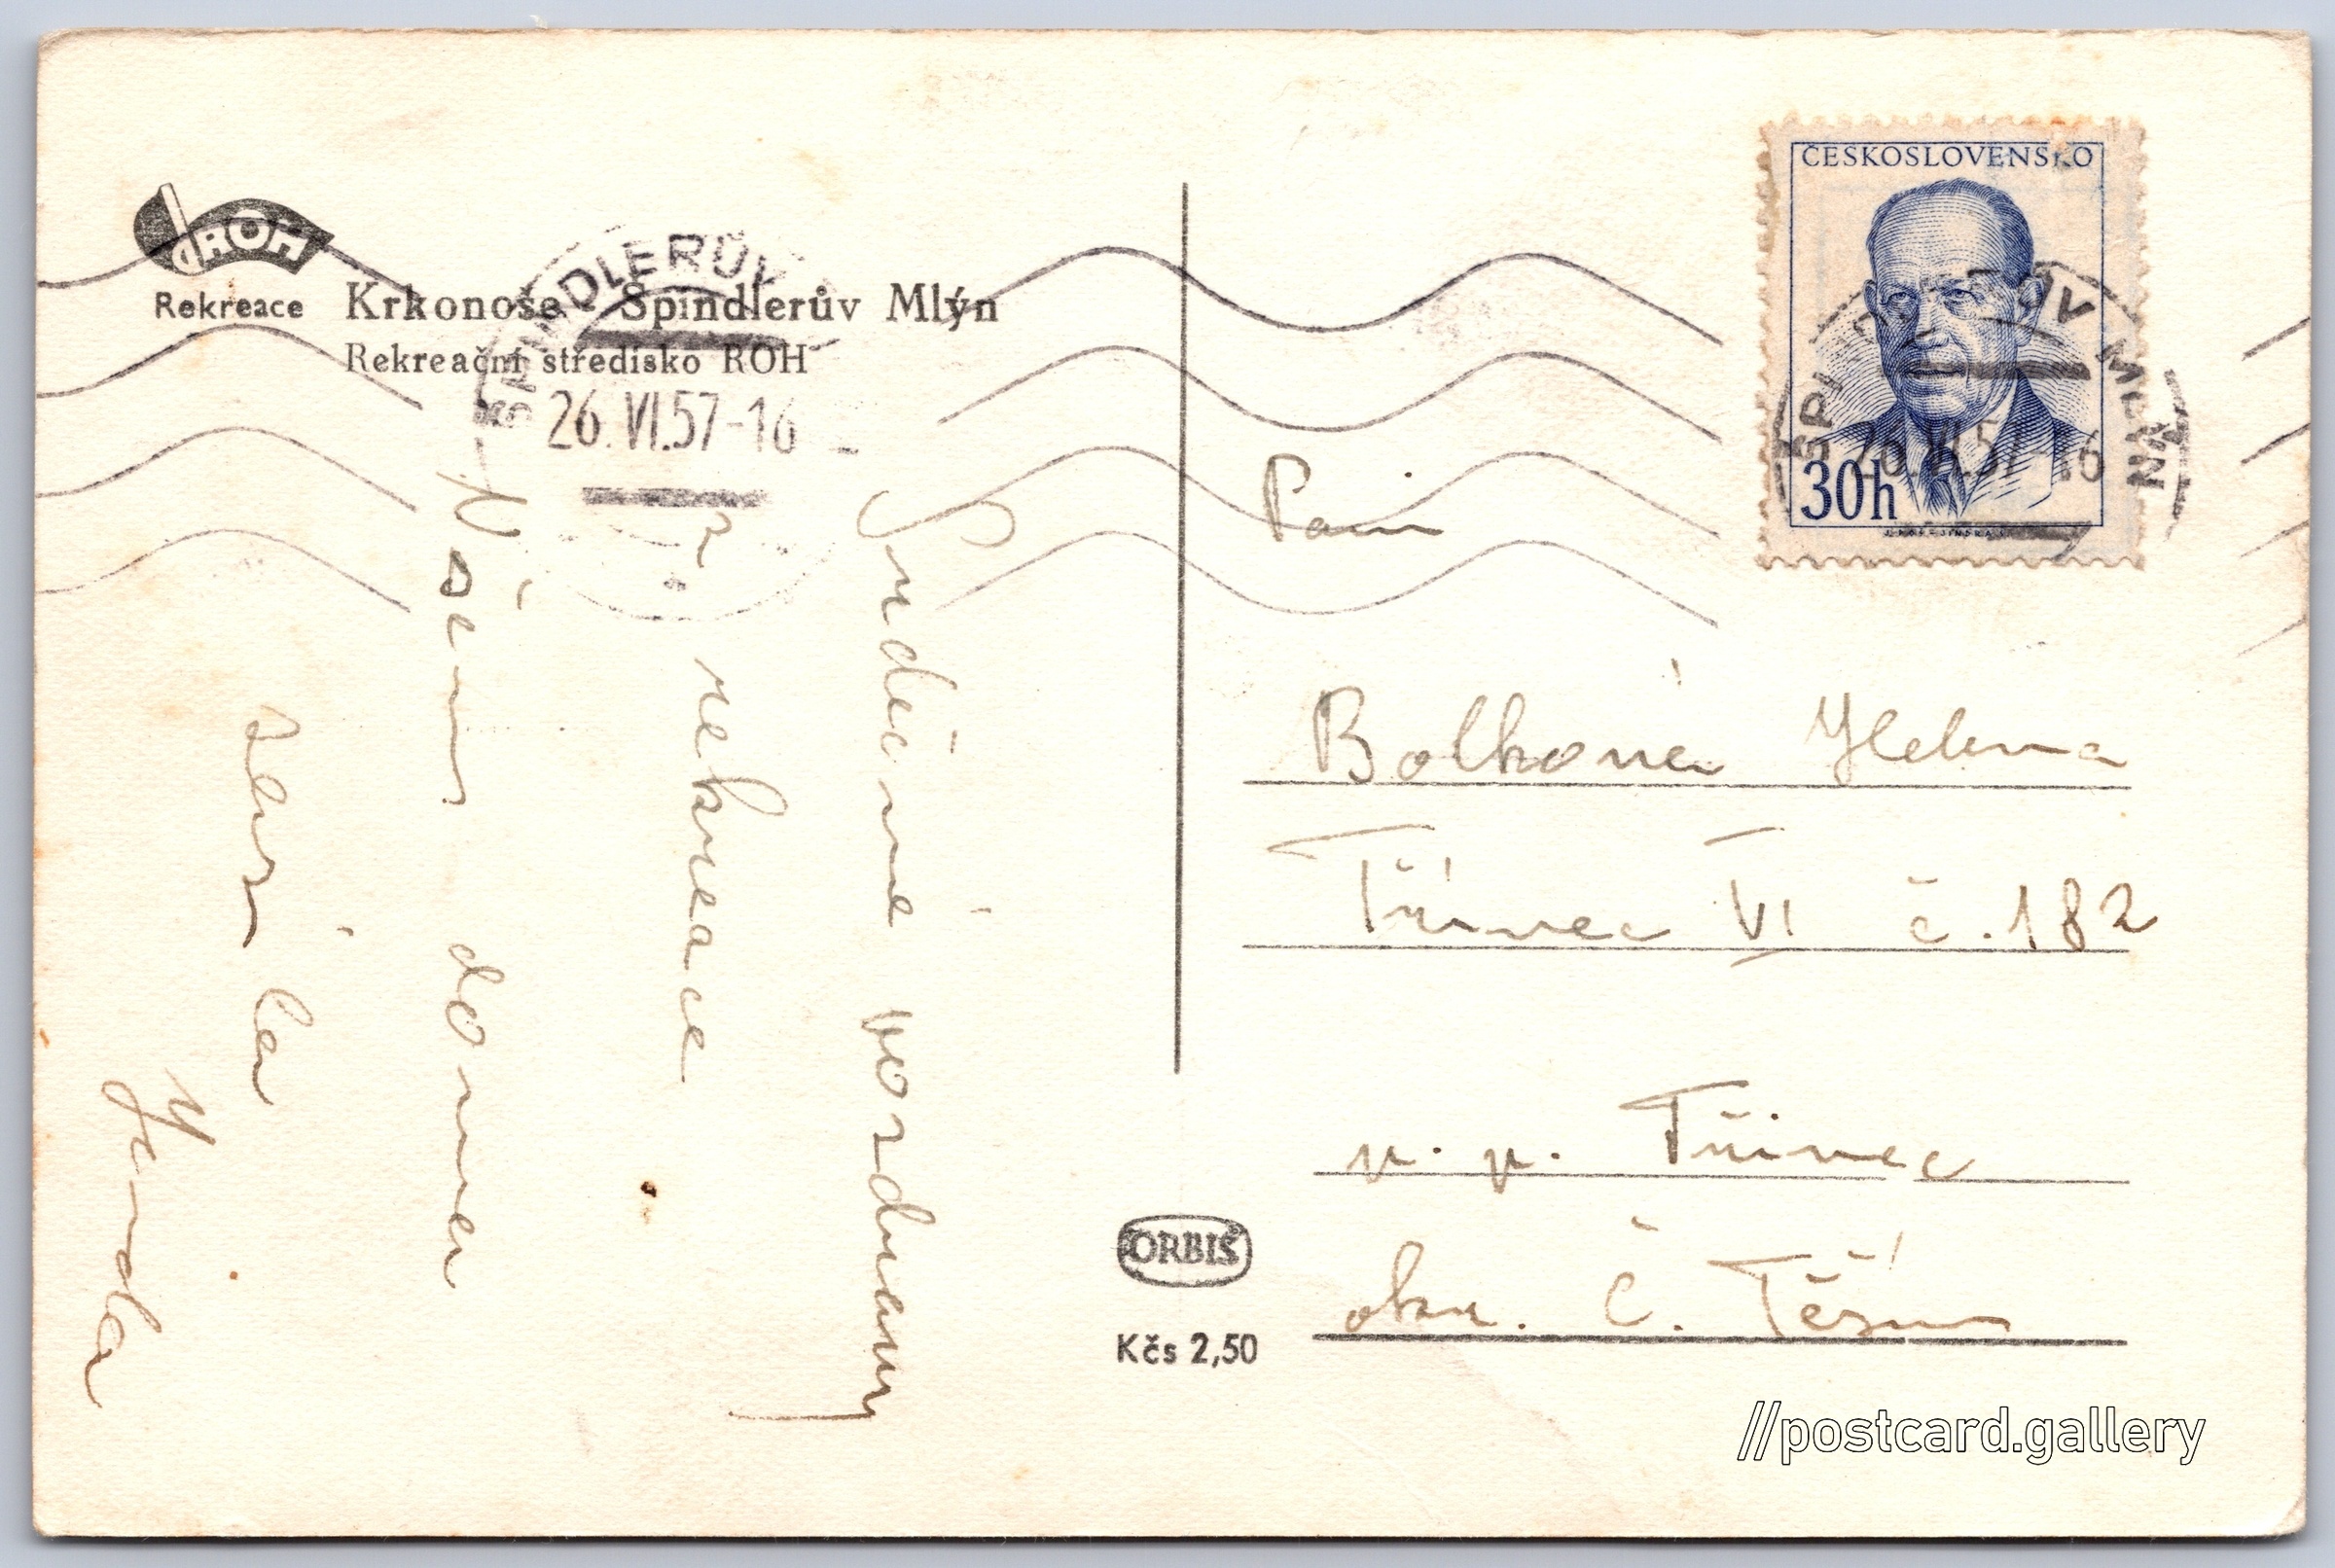 ROH
Rekreace
Krkonoše - Špindlerův Mlýn
Rekreační středisko ROH
ŠPINDLERŮV
26.VI.57-16
Srdečné pozdravy
z rekreace
Všem doma
Jenda
ČESKOSLOVENSKO
30h
ŠPINDLERŮV MLÝN
26.VI.57-16
Paní
Bolková Helena
Třinec VI č. 182
p. p. Třinec
okr. Č. Těšín
ORBIS
Kčs 2,50
//postcard.gallery